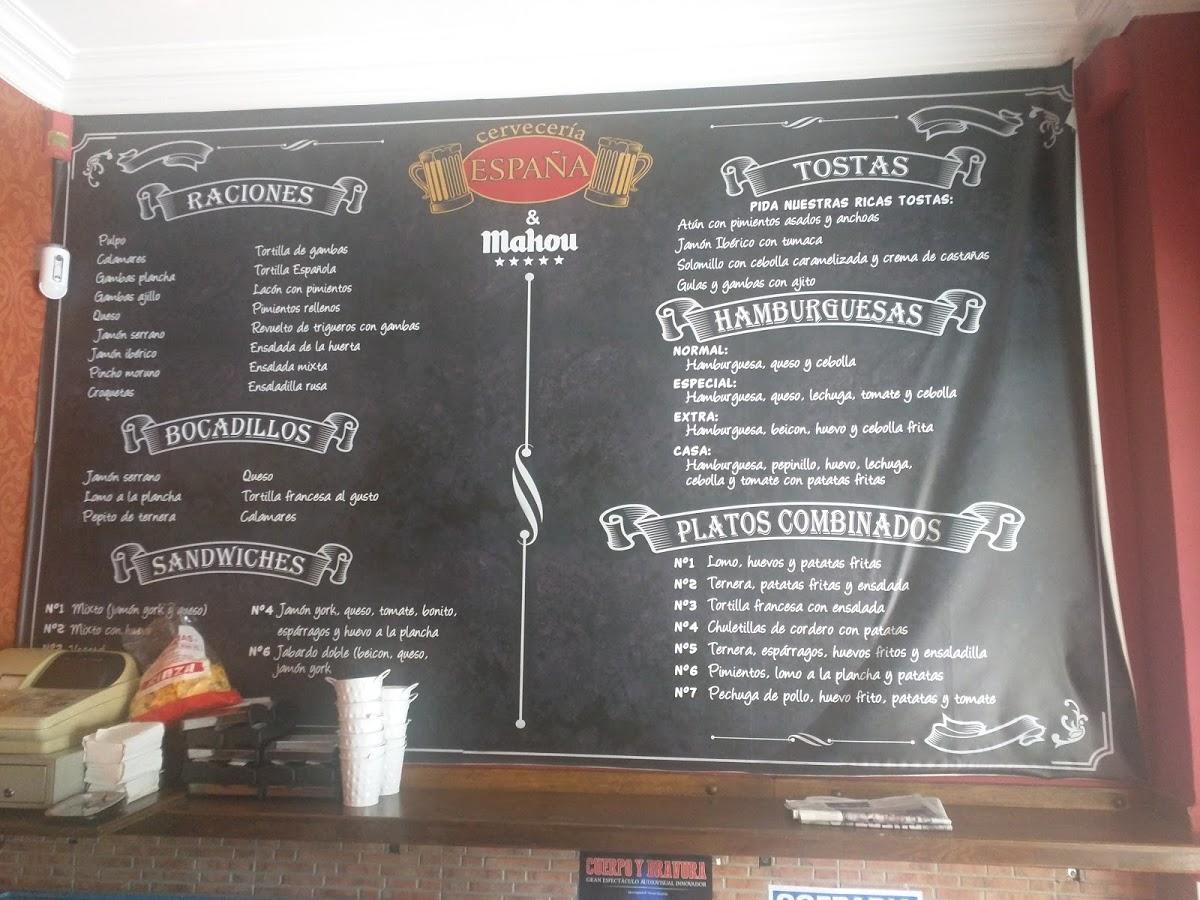 cervecería
ESPAÑA
&
Mahou
RACIONES
Pulpo
Calamares
Gambas plancha
Gambas ajillo
Queso
Jamón serrano
Jamón ibérico
Pincho moruno
Croquetas
Tortilla de gambas
Tortilla Española
Lacón con pimientos
Pimientos rellenos
Revuelto de trigueros con gambas
Ensalada de la huerta
Ensalada mixta
Ensaladilla rusa
BOCADILLOS
Jamón serrano
Lomo a la plancha
Pepito de ternera
Queso
Tortilla francesa al gusto
Calamares
SANDWICHES
Nº1 Mixto (jamón york y queso)
Nº2 Mixto con huevo
Nº3 Vegetal
Nº4 Jamón york, queso, tomate, bonito,
espárragos y huevo a la plancha
Nº6 Jabardo doble (beicon, queso,
jamón york
TOSTAS
PIDA NUESTRAS RICAS TOSTAS:
Atún con pimientos asados y anchoas
Jamón Ibérico con tumaca
Solomillo con cebolla caramelizada y crema de castañas
Gulas y gambas con ajito
HAMBURGUESAS
NORMAL:
Hamburguesa, queso y cebolla
ESPECIAL:
Hamburguesa, queso, lechuga, tomate y cebolla
EXTRA:
Hamburguesa, beicon, huevo y cebolla frita
CASA:
Hamburguesa, pepinillo, huevo, lechuga,
cebolla y tomate con patatas fritas
PLATOS COMBINADOS
Nº1 Lomo, huevos y patatas fritas
Nº2 Ternera, patatas fritas y ensalada
Nº3 Tortilla francesa con ensalada
Nº4 Chuletillas de cordero con patatas
Nº5 Ternera, espárragos, huevos fritos y ensaladilla
Nº6 Pimientos, lomo a la plancha y patatas
Nº7 Pechuga de pollo, huevo frito, patatas y tomate
CUERPO Y BRAVURA
GRAN ESPECTÁCULO AUDIOVISUAL INNOVADOR